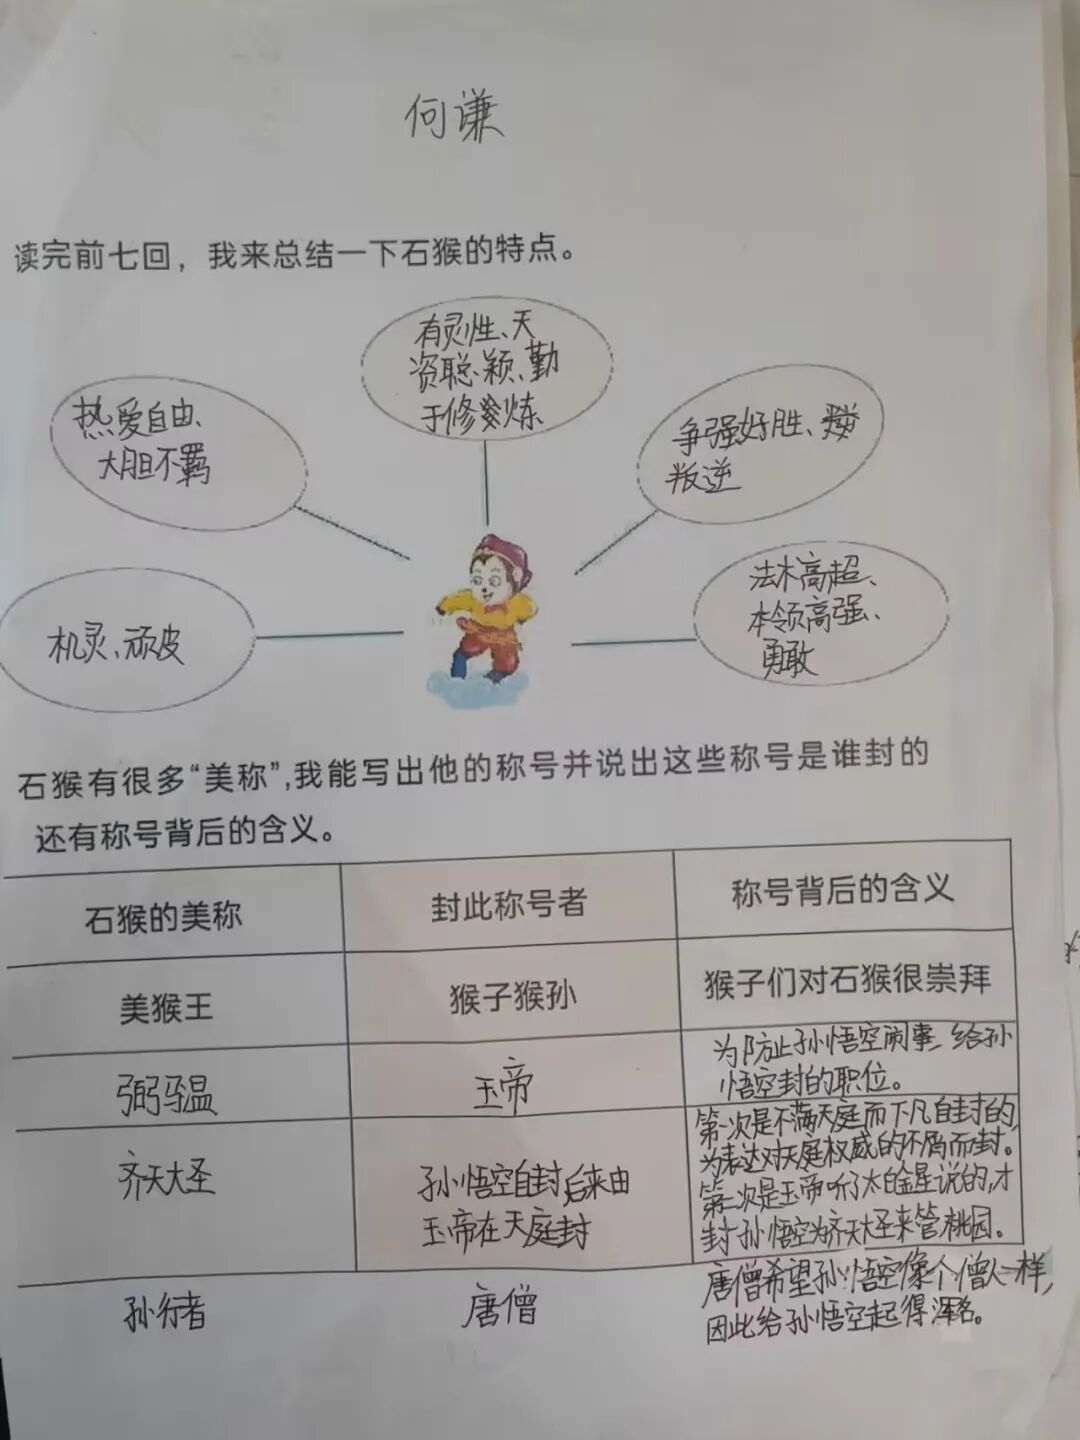 何谦
读完前七回，我来总结一下石猴的特点。
有灵性、天
资聪、颖、勤
于修炼
热爱自由、
大胆不羁
争强好胜、
叛逆
机灵、顽皮
法术高超、
本领高强、
勇敢
石猴有很多“美称”,我能写出他的称号并说出这些称号是谁封的
还有称号背后的含义。
石猴的美称 封此称号者 称号背后的含义
美猴王 猴子猴孙 猴子们对石猴很崇拜
弼马温 玉帝
为防止孙悟空闹事，给孙
悟空封的职位。
齐天大圣
孙悟空自封，后来由
玉帝在天庭封
第一次是不满天庭而下凡自封的，
为表达对天庭权威的不屑而封。
第二次是玉帝听了太白金星说的，才
封孙悟空为齐天大圣来管桃园。
孙行者 唐僧
唐僧希望孙悟空像个僧人一样，
因此给孙悟空起得浑名。